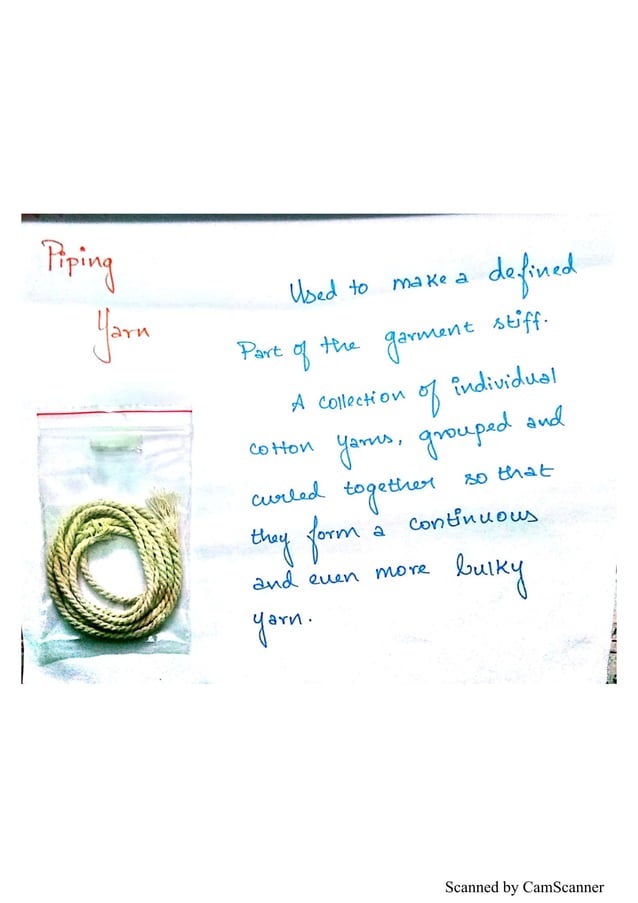 Piping
Yarn
Used to make a defined
Part of the garment stiff.
A collection of individual
cotton yarns, grouped and
curled together so that
they form a continuous
and even more bulky
yarn.
Scanned by CamScanner